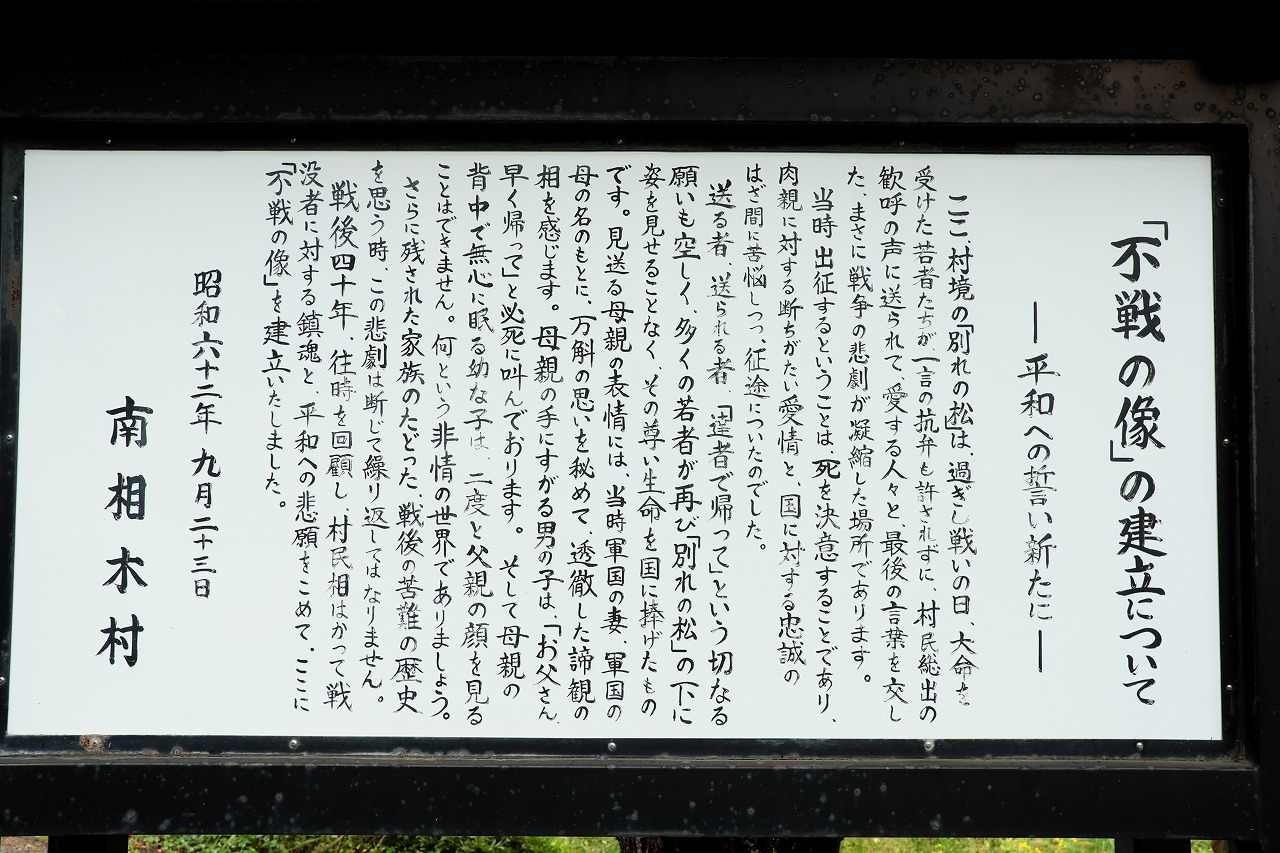 「不戦の像」の建立について
―平和への誓い新たに―
ここ、村境の「別れの松」は、過ぎし戦いの日、大命を
受けた若者たちが一言の抗弁も許されずに、村民総出の
歓呼の声に送られて、愛する人々と、最後の言葉を交し
た、まさに戦争の悲劇が凝縮した場所であります。
当時出征するということは、死を決意することであり、
肉親に対する断ちがたい愛情と、国に対する忠誠の
はざ間に苦悩しつつ、征途についたのでした。
送る者、送られる者、「達者で帰って」という切なる
願いも空しく、多くの若者が再び「別れの松」の下に
姿を見せることなく、その尊い生命を国に捧げたもの
です。見送る母親の表情には、当時軍国の妻、軍国の
母の名のもとに、万斛の思いを秘めて、透徹した諦観の
相を感じます。母親の手にすがる男の子は、「お父さん、
早く帰って」と必死に叫んでおります。そして母親の
背中で無心に眠る幼な子は、二度と父親の顔を見る
ことはできません。何という非情の世界でありましょう。
さらに残された家族のたどった、戦後の苦難の歴史
を思う時、この悲劇は断じて繰り返してはなりません。
戦後四十年、往時を回顧し、村民相はかって戦
没者に対する鎮魂と、平和への悲願をこめて、ここに
「不戦の像」を建立いたしました。
昭和六十二年 九月二十三日
南相木村